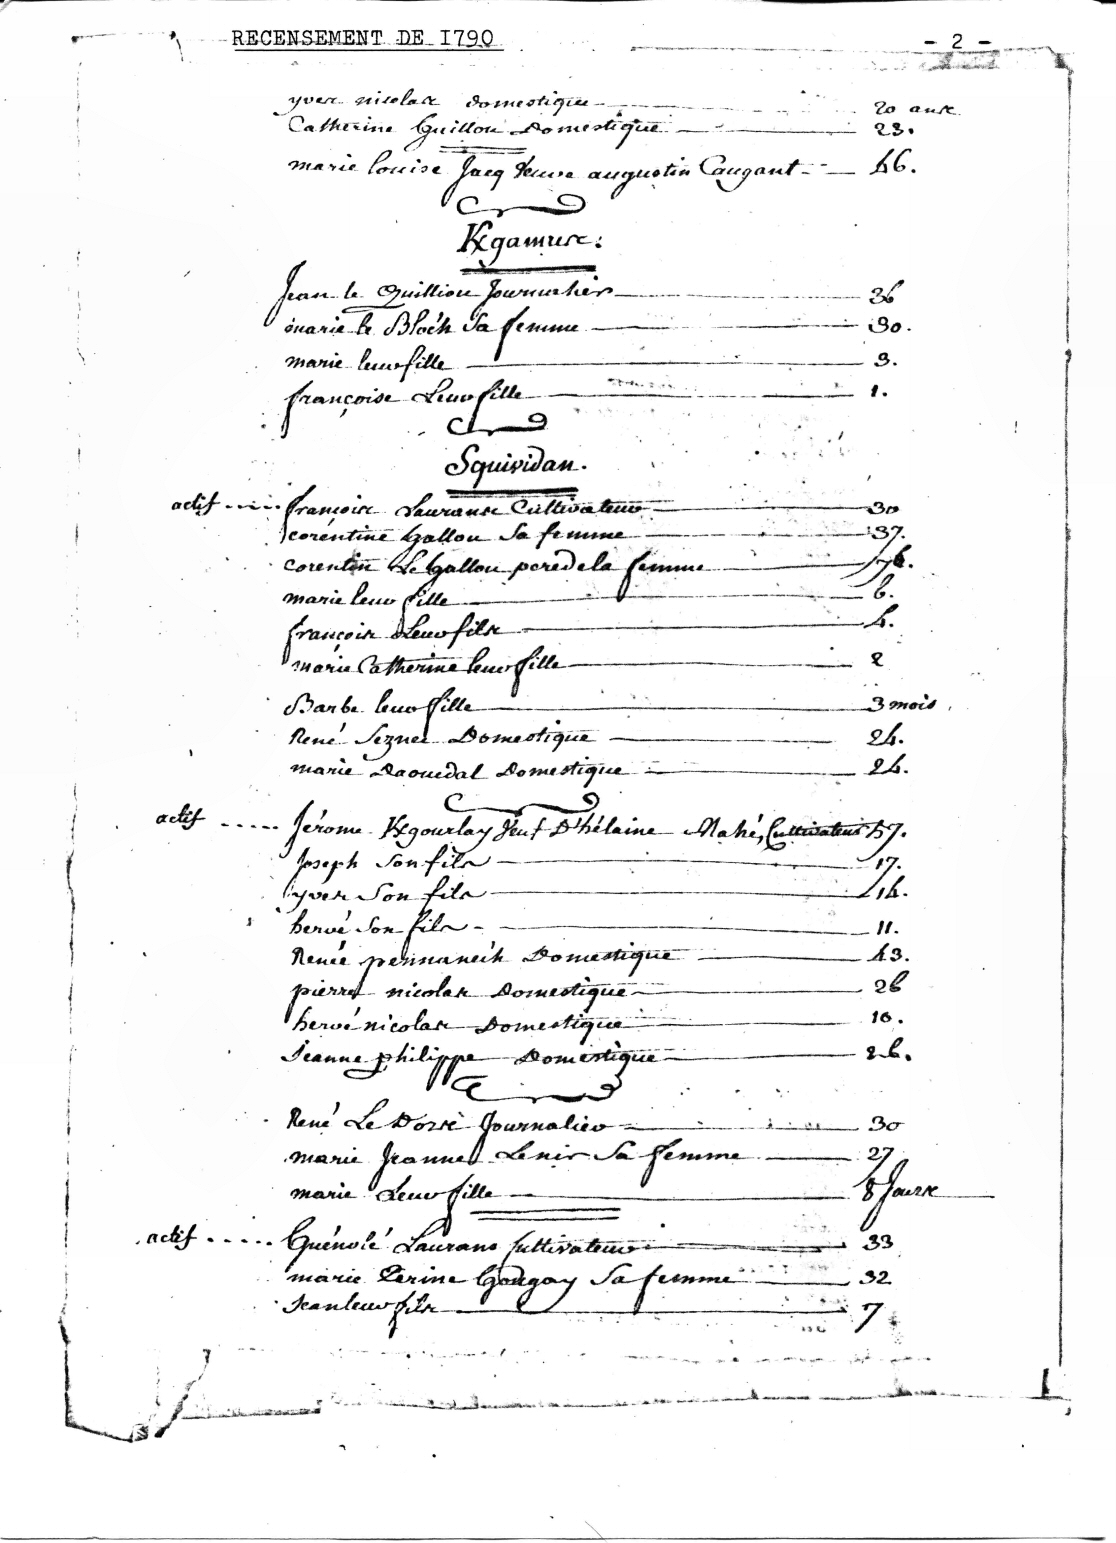 RECENSEMENT DE I790
- 2 -
yves nicolas domestique 20 ans
Catherine Guillou Domestique 23.
marie louise Jacq Veuve augustin Caugant 46.
Kgamus:
Jean le Quilliou Journalier 36
marie le Bloc'h Sa femme 30.
marie leur fille 3.
françoise Leur fille 1.
Squividan.
actif ..... françois Laurans Cultivateur 30
corentine Gallou Sa femme 37.
corentin Le Gallou pere de la femme 76.
marie leur fille 6.
françois Leur fils 4.
marie Catherine leur fille 2
Barbe leur fille 3 mois
René Seznec Domestique 24.
marie Daouedal Domestique 24.
actif ..... Jérome Kgourlay Veuf D'hélaine Mahé, Cultivateur 57.
Joseph Son fils 17.
yves Son fils 14.
hervé Son fils 11.
Renée pennanec'h Domestique 43.
pierre nicolas Domestique 26
hervé nicolas Domestique 10.
Jeanne philippe Domestique 26.
René Le Dorse Journalier 30
marie Jeanne Lenir Sa femme 27
marie Leur fille 8 Jours
actif ..... Guénolé Laurans Cultivateur 33
marie Perine Gourgay Sa femme 32
Jean leur fils 7